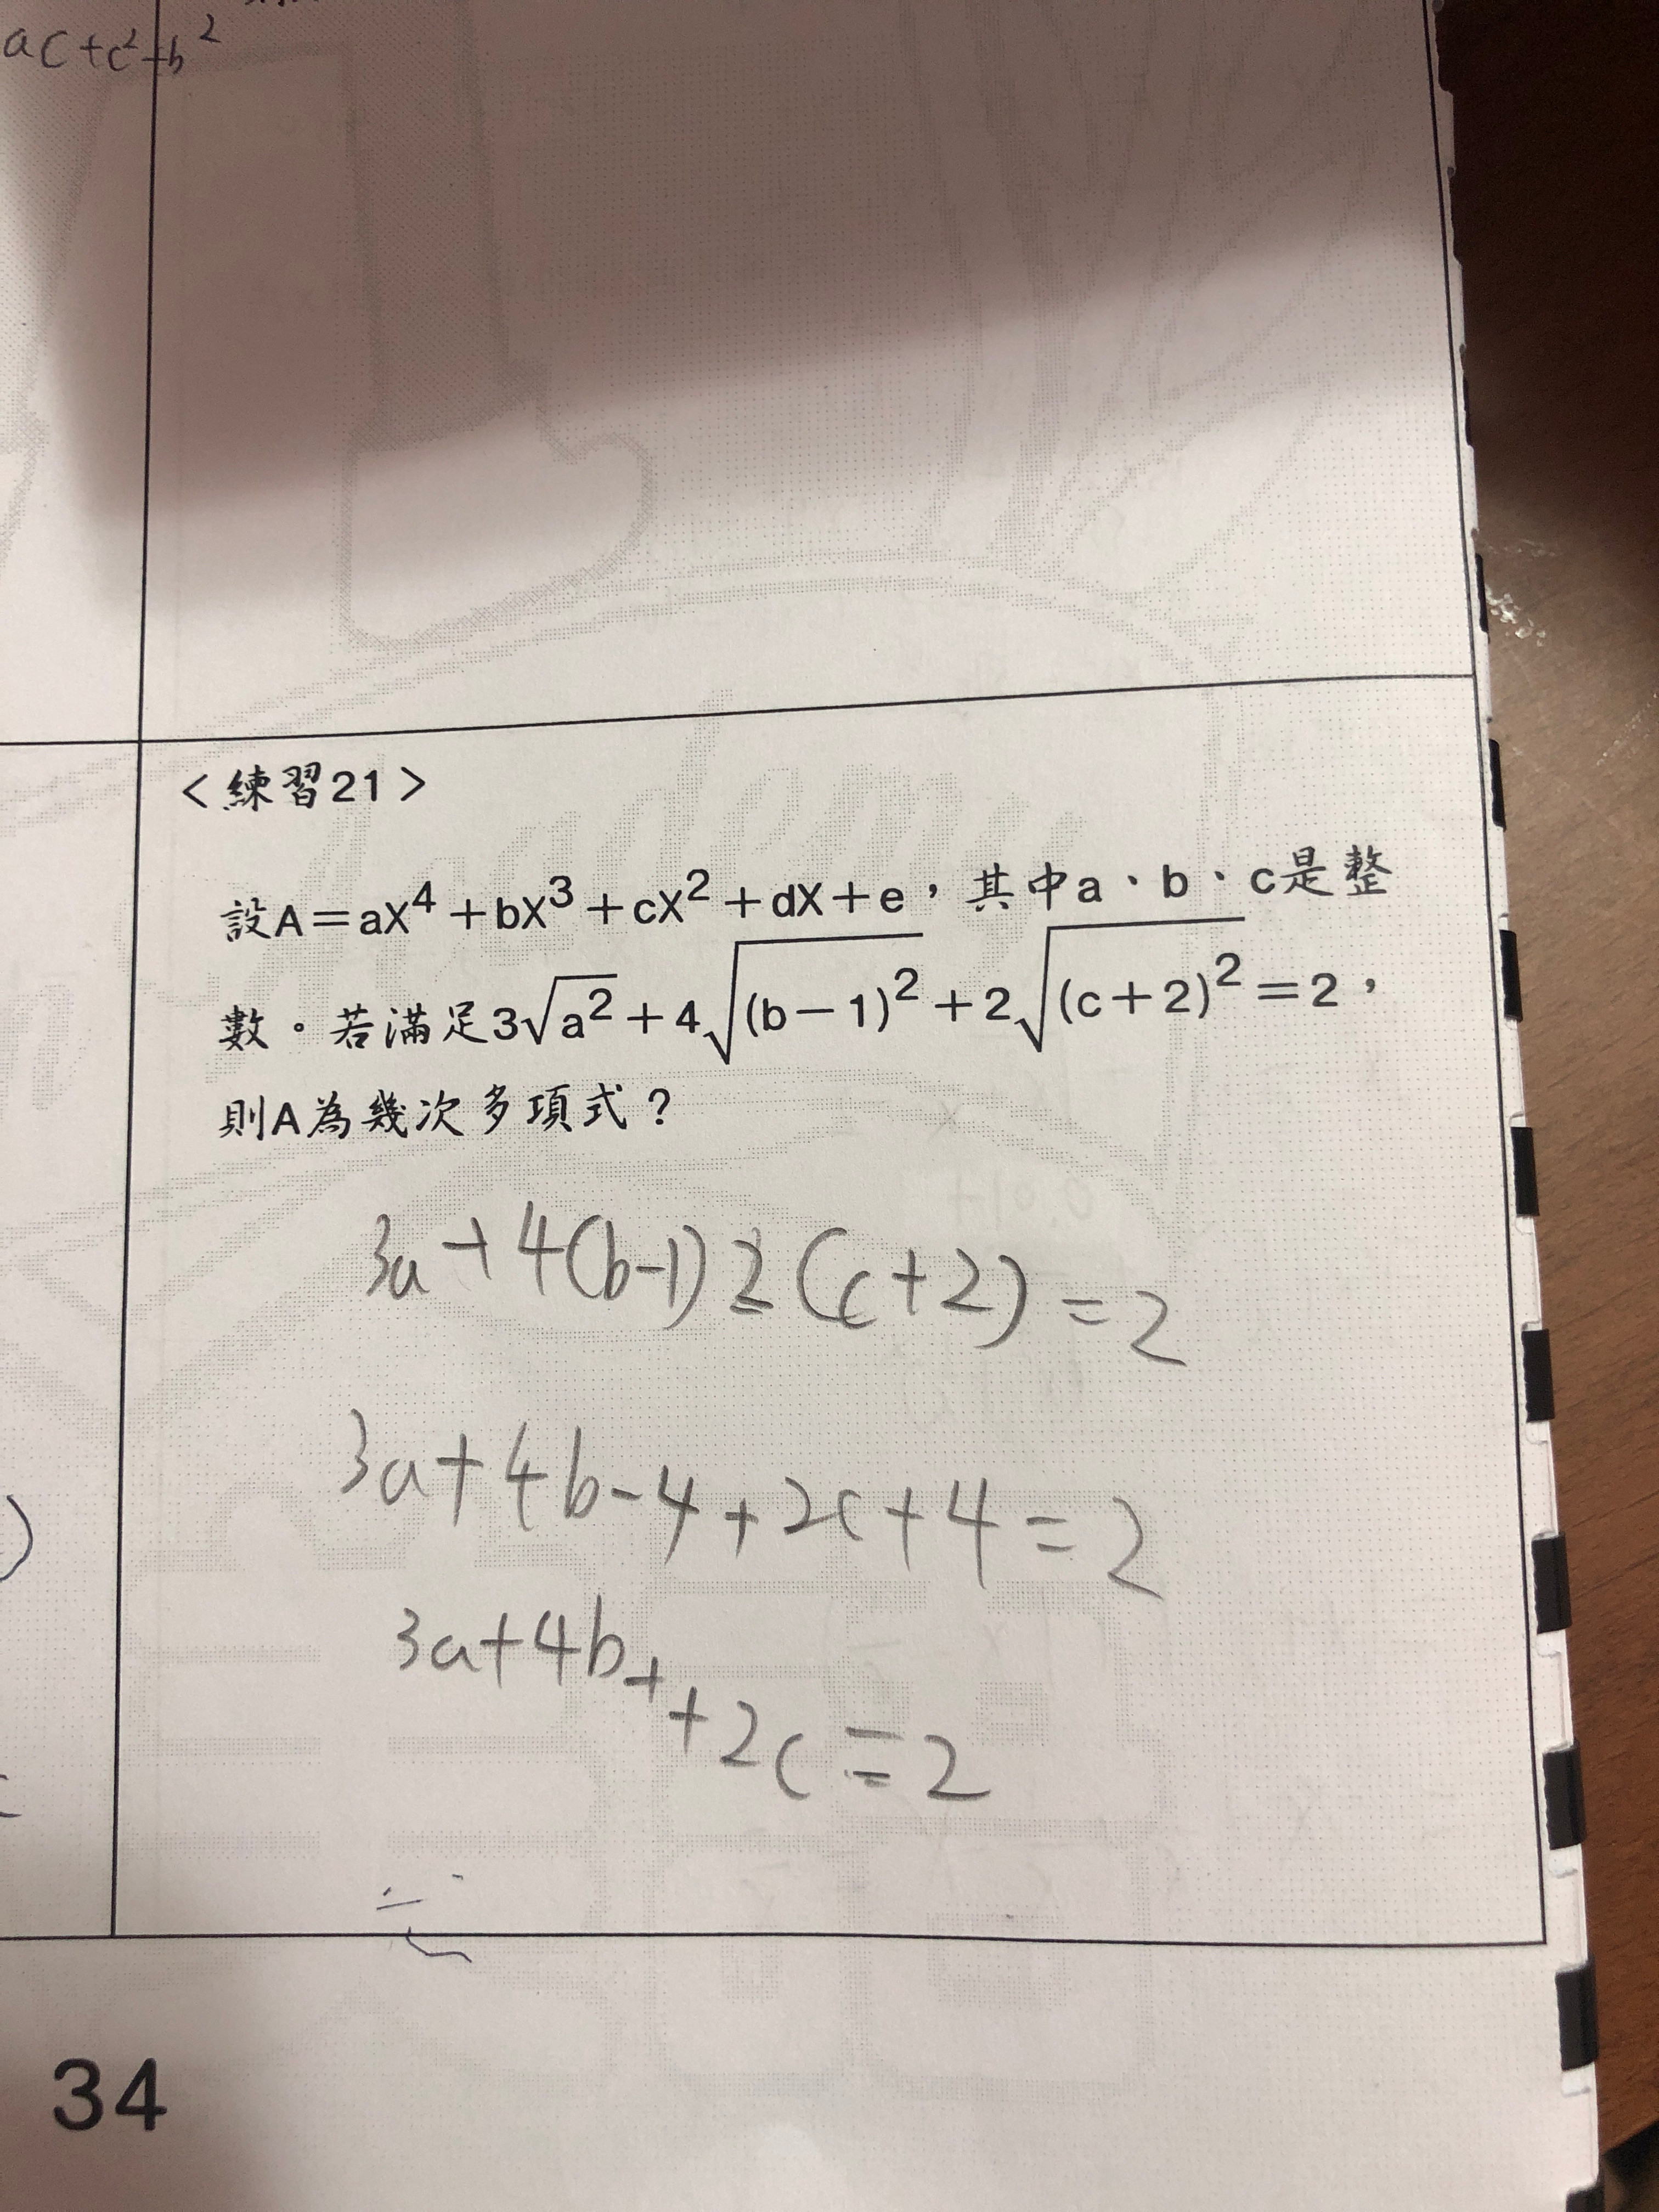 ac+c²+b²
<練習21>
設A=aX⁴+bX³+cX²+dX+e，其中a、b、c是整
數。若滿足3√a²+4√(b−1)²+2√(c+2)²=2，
則A為幾次多項式？
3a+4(b-1)2(c+2)=2
3a+4b-4+2c+4=2
3a+4b+
+2c=2
34